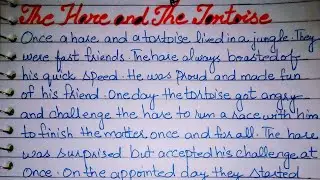 The Hare and The Tortoise
Once a hare and a tortoise lived in a jungle. They
were fast friends. The hare always boasted of
his quick speed. He was proud and made fun
of his friend. One day the tortoise got angry
and challenge the hare to run a race with him
to finish the matter once and for all. The hare
was surprised but accepted his challenge at
once. On the appointed day they started